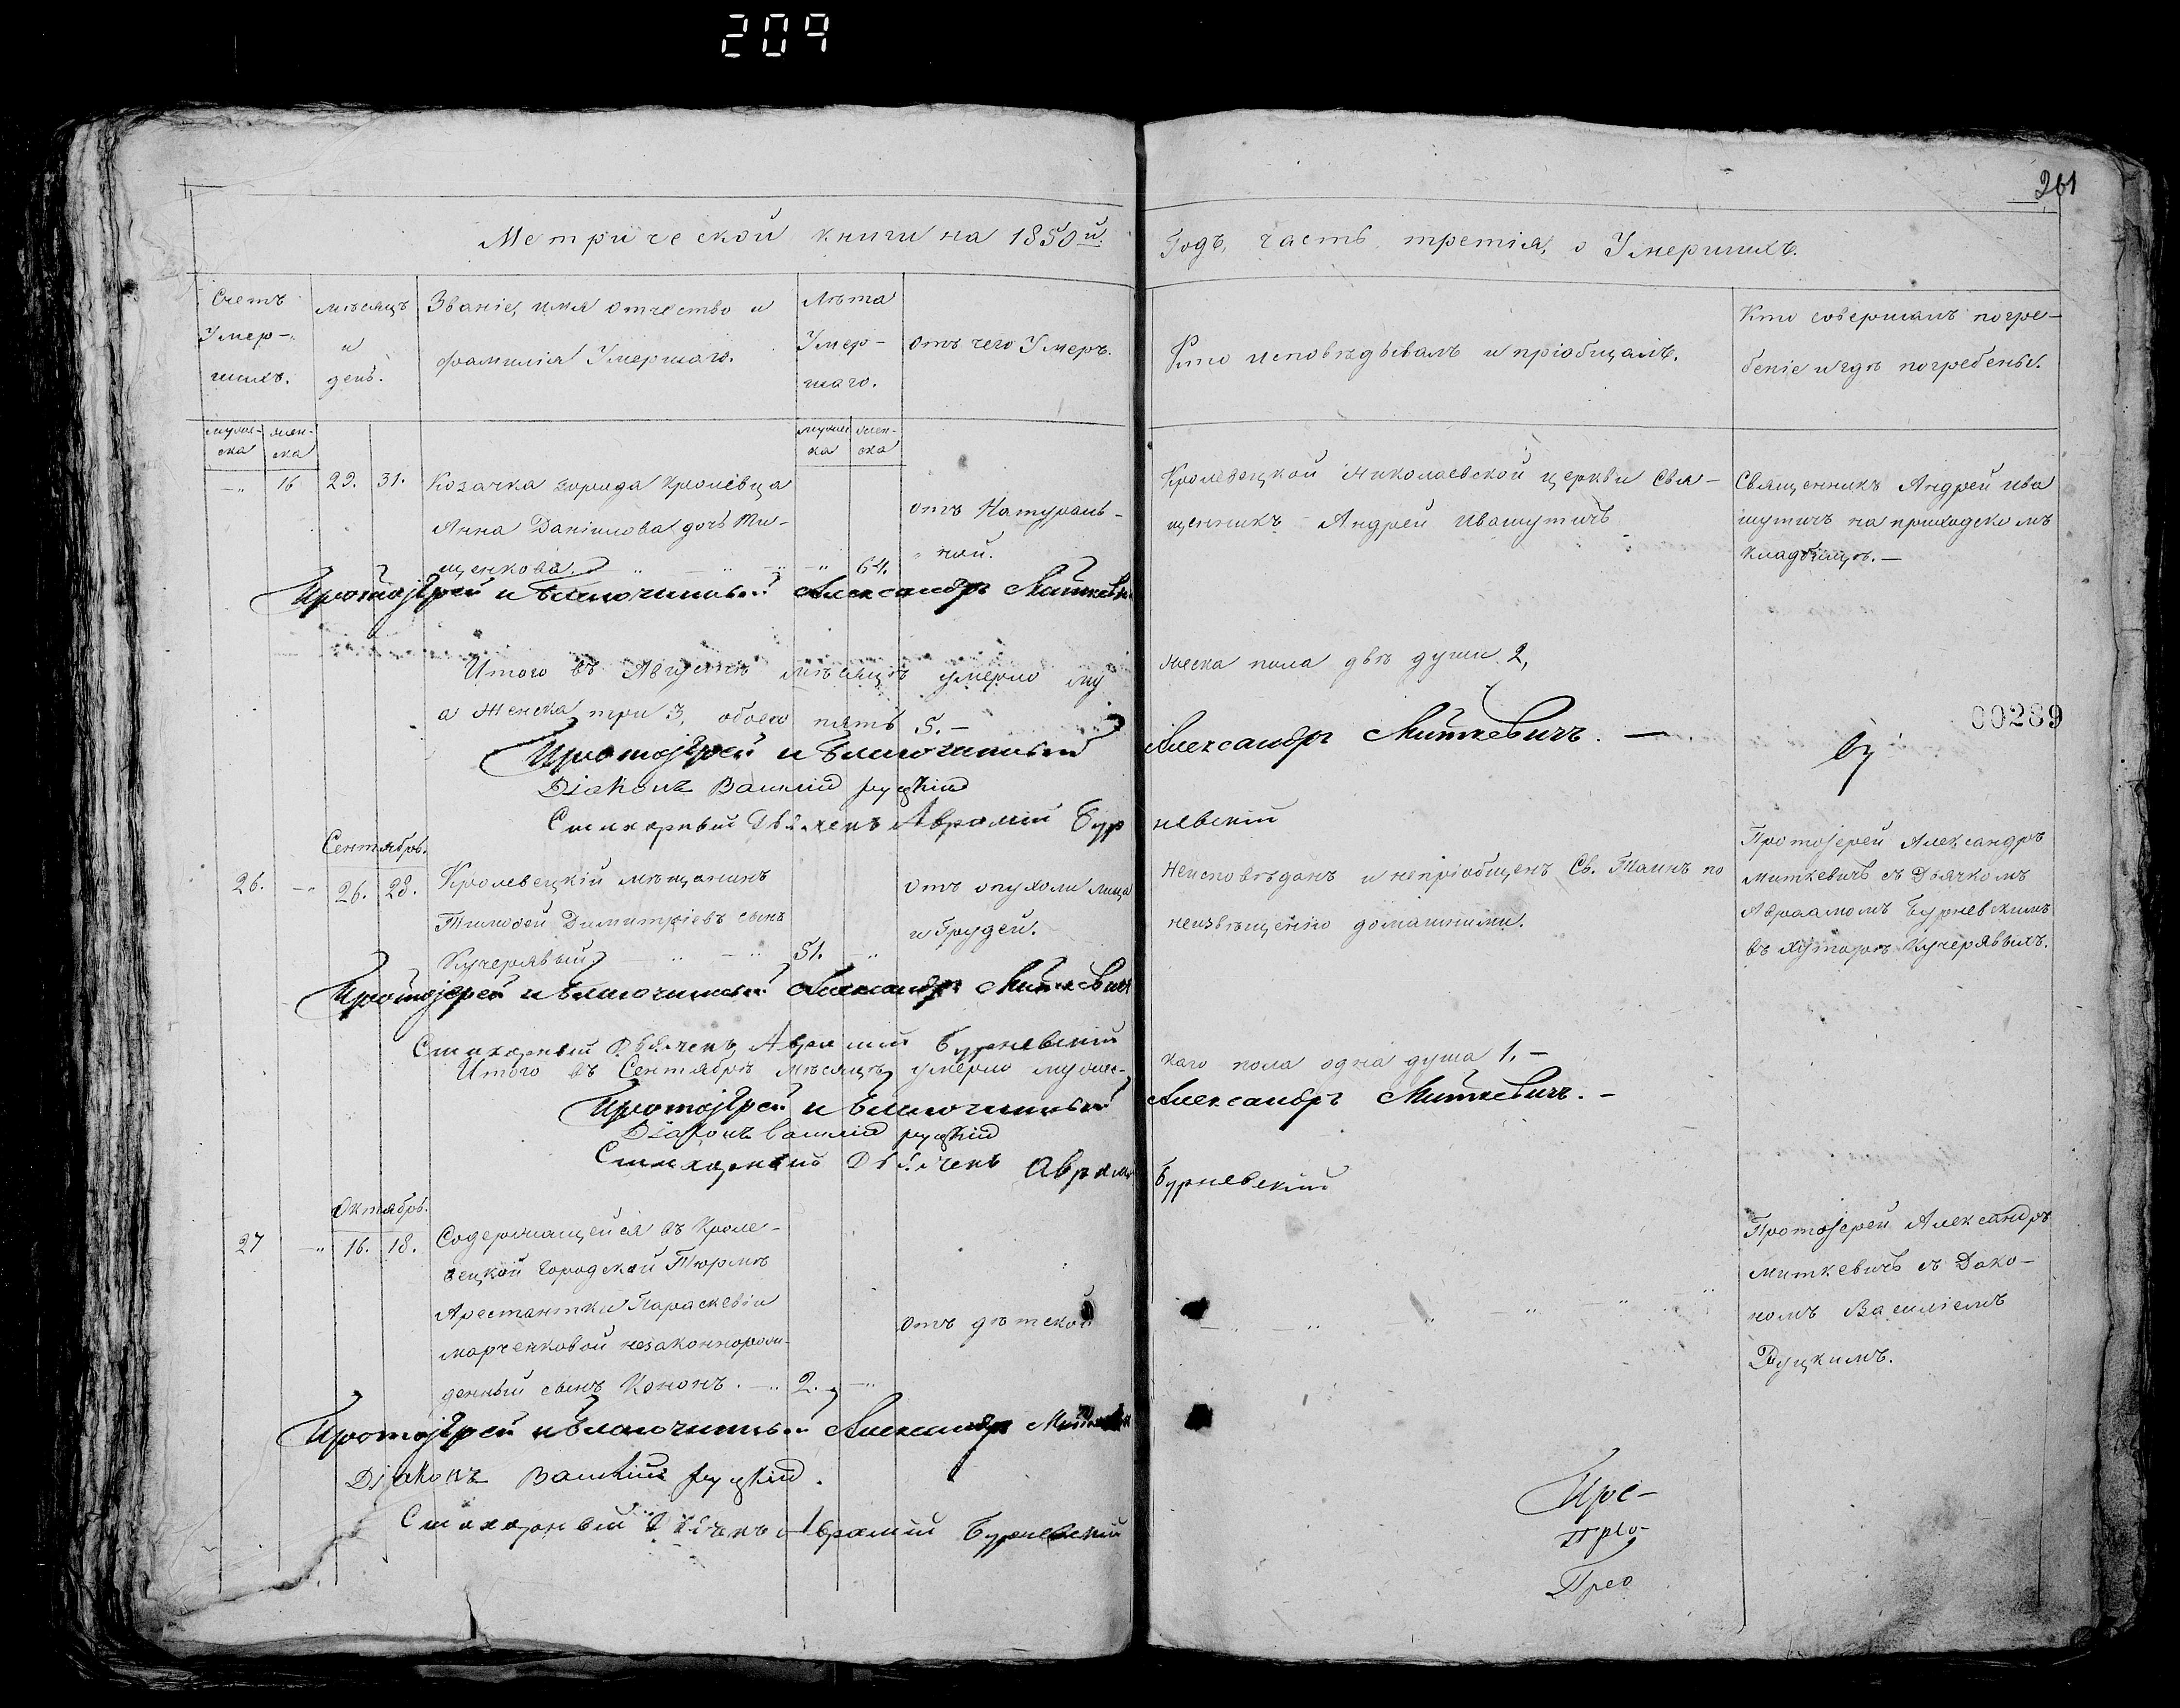 209
261
Метрической книги на 1850й.
Годъ, часть третія, о Умершихъ.
Счетъ
Умер-
шихъ.
мѣсяцъ
и
день.
Званіе, имя отчество и
фамилія Умершаго.
Лѣта
Умер-
шаго.
отъ чего Умеръ.
Кто исповѣдывалъ и пріобщалъ.
Кто совершалъ погре-
беніе и гдѣ погребены.
муже-
ска
жен-
ска
мужес
ка
жен-
ска
-„ 16 29. 31. Козачка города Кролевца
Анна Даніилова дочь Ти-
щенкова. -„ 64.
отъ Натураль-
ной.
Кролевецкой Николаевской церкви Свя-
щенникъ Андрей Ивашутичъ
Священникъ Андрей Ива
шутичъ на приходскомъ
кладбищѣ.-
Протоіерей и Благочинный Александръ Миткевич
Итого въ Августѣ мѣсяцѣ умерло му
жеска пола двѣ души 2,
а Женска три 3, обоего пять 5.-
Протоіерей и Благочинный Александръ Миткевичъ.-
00289
Діаконъ Василій Руцкій
Стихарный Дьячекъ Аврамій Бур невскій
Сентябрь.
26. -„ 26. 28. Кролевецкій мѣщанинъ
Тимоѳей Димитріевъ сынъ
Кучерявый 51. -„
отъ опухоли лица
и Грудей.
Неисповѣданъ и непріобщенъ Св. Таинъ по
неизвѣщенію домашними.
Протоіерей Александръ
Миткевичъ съ Дьячкомъ
Авраамомъ Бурневскимъ
въ хуторѣ Кучерявыхъ.
Протоіерей и Благочинный Александръ Миткевичъ
Стихарный Дьячекъ Аврамій Бурневскій
Итого въ Сентябрѣ мѣсяцѣ умерло мужес-
каго пола одна душа 1.-
Протоіерей и Благочинный Александръ Миткевичъ.-
Діаконъ Василій Руцкій
Стихарный Дьячекъ Аврамій Бурневскій
Октябрь.
27 -„ 16. 18. Содержащейся въ Кроле-
вецкой Городской Тюрмѣ
Арестантки Параскевіи
Марченковой незаконнорож-
денный сынъ Кононъ. -„ 2. -„
отъ дѣтской
Протоіерей Александръ
Миткевичъ съ Діако-
номъ Василіемъ
Руцкимъ.
Протоіерей и Благочинный Александръ Миткевичъ
Діаконъ Василій Руцкій.
Стихарный Дьячекъ Аврамій Бурневскій